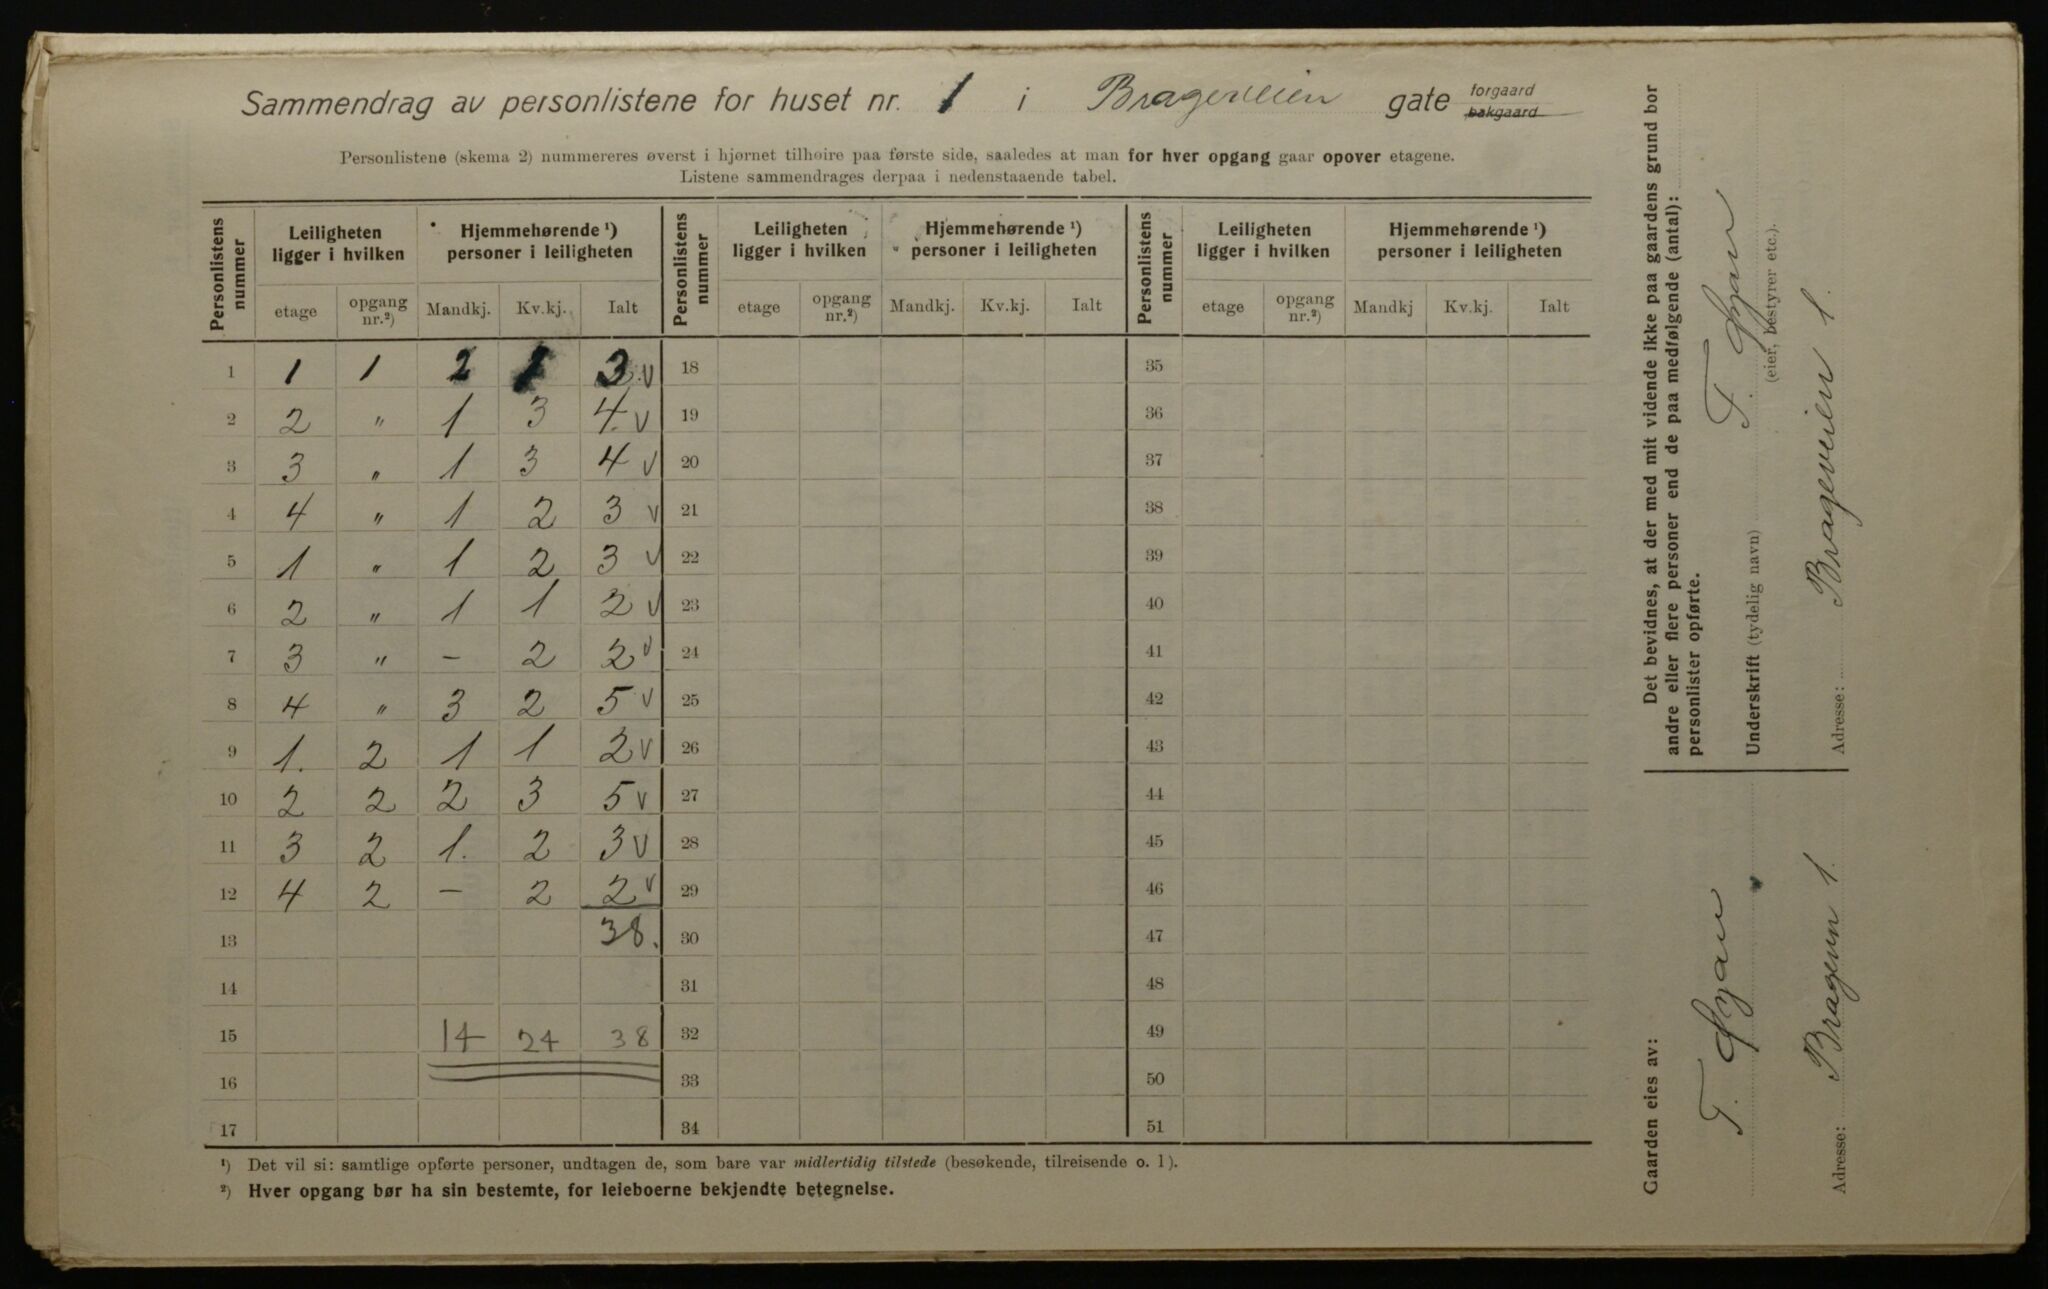 Sammendrag av personlistene for huset nr. 1 i Brageveien gate forgaard bakgaard
Personlistene (skema 2) nummereres øverst i hjørnet tilhøire paa første side, saaledes at man for hver opgang gaar opover etagene.
Listene sammendrages derpaa i nedenstaaende tabel.
Personlistens nummer | Leiligheten ligger i hvilken | Hjemmehørende ¹) personer i leiligheten | Personlistens nummer | Leiligheten ligger i hvilken | Hjemmehørende ¹) personer i leiligheten | Personlistens nummer | Leiligheten ligger i hvilken | Hjemmehørende ¹) personer i leiligheten
etage | opgang nr.²) | Mandkj. | Kv.kj. | Ialt | etage | opgang nr.²) | Mandkj. | Kv.kj. | Ialt | etage | opgang nr.²) | Mandkj | Kv.kj. | Ialt
1 | 1 | 1 | 2 | 1 | 3 v | 18 | 35
2 | 2 | " | 1 | 3 | 4. v | 19 | 36
3 | 3 | " | 1 | 3 | 4 v | 20 | 37
4 | 4 | " | 1 | 2 | 3 v | 21 | 38
5 | 1 | " | 1 | 2 | 3 v | 22 | 39
6 | 2 | " | 1 | 1 | 2 v | 23 | 40
7 | 3 | " | – | 2 | 2 v | 24 | 41
8 | 4 | " | 3 | 2 | 5 v | 25 | 42
9 | 1. | 2 | 1 | 1 | 2 v | 26 | 43
10 | 2 | 2 | 2 | 3 | 5 v | 27 | 44
11 | 3 | 2 | 1. | 2 | 3 v | 28 | 45
12 | 4 | 2 | – | 2 | 2 v | 29 | 46
13 | 38. | 30 | 47
14 | 31 | 48
15 | 14 | 24 | 38 | 32 | 49
16 | 33 | 50
17 | 34 | 51
¹) Det vil si: samtlige opførte personer, undtagen de, som bare var midlertidig tilstede (besøkende, tilreisende o. l).
²) Hver opgang bør ha sin bestemte, for leieboerne bekjendte betegnelse.
Det bevidnes, at der med mit vidende ikke paa gaardens grund bor
andre eller flere personer end de paa medfølgende (antal):
personlister opførte.
Underskrift (tydelig navn)
(eier, bestyrer etc.).
Adresse: Brageveien 1.
Gaarden eies av:
Adresse: Bragevn 1.